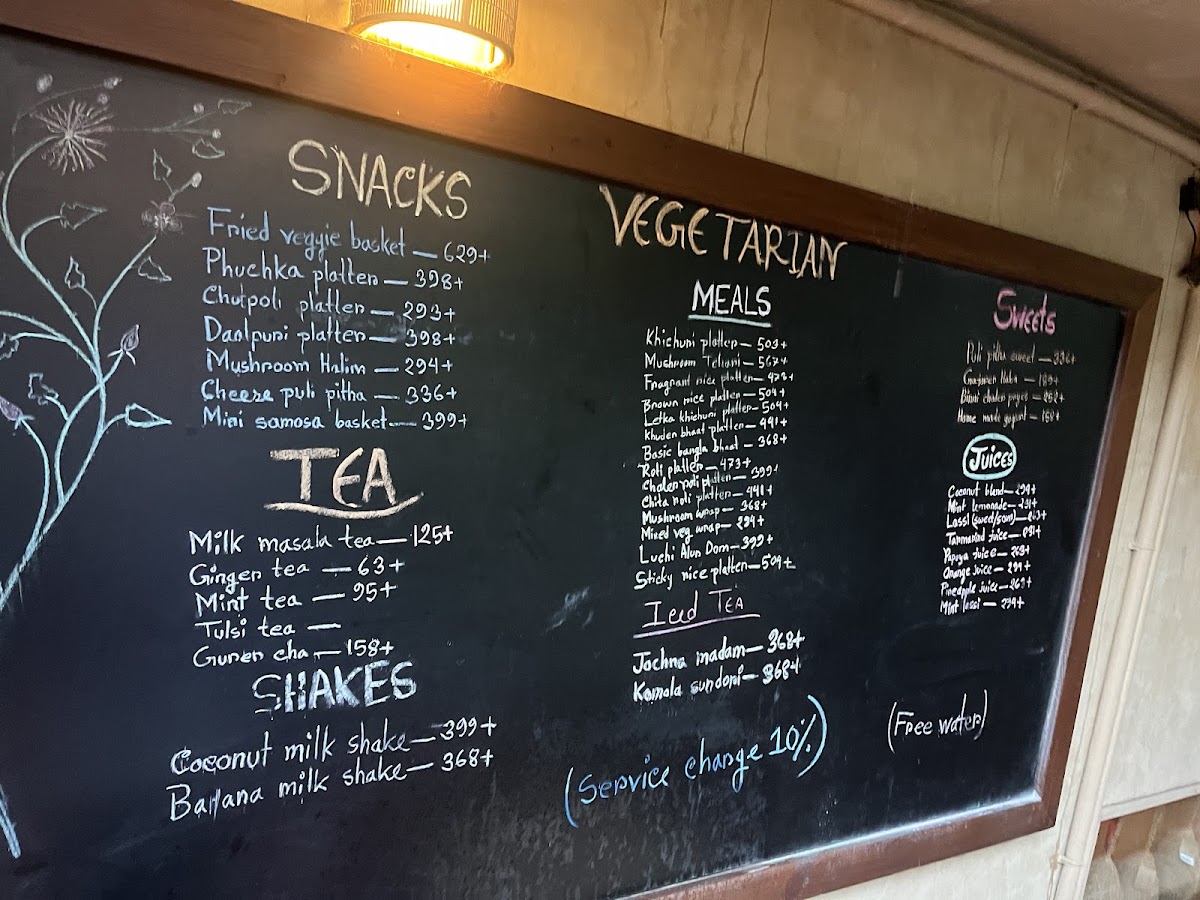 SNACKS
Fried veggie basket — 629+
Phuchka platter — 398+
Chutpoti platter — 293+
Daalpuri platter — 398+
Mushroom Halim — 294+
Cheese puli pitha — 336+
Mini samosa basket — 399+
TEA
Milk masala tea — 125+
Ginger tea — 63+
Mint tea — 95+
Tulsi tea —
Gurer cha — 158+
SHAKES
Coconut milk shake — 399+
Banana milk shake — 368+
VEGETARIAN
MEALS
Khichuri platter — 503+
Mushroom Tehari — 567+
Fragrant rice platter — 473+
Brown rice platter — 504+
Letka khichuri platter — 504+
Khuder bhaat platter — 441+
Basic bangla bhaat — 368+
Roti platter — 473+
platter — 399+
Chita roti platter — 441+
Mushroom wrap — 368+
Mixed veg wrap — 294+
Luchi Alur Dom — 399+
Sticky rice platter — 509+
Iced TEA
Jochna madam — 368+
Komola sundori — 368+
(Service charge 10%)
Sweets
Puli pitha sweet — 336+
Home made yogurt
JUICES
Coconut blend — 294+
Mint lemonade — 231+
Lassi (sweet/sour)
Tammarind juice
Papaya juice — 263+
Orange juice — 294+
Pineapple juice — 263+
Mint lassi — 294+
(Free water)